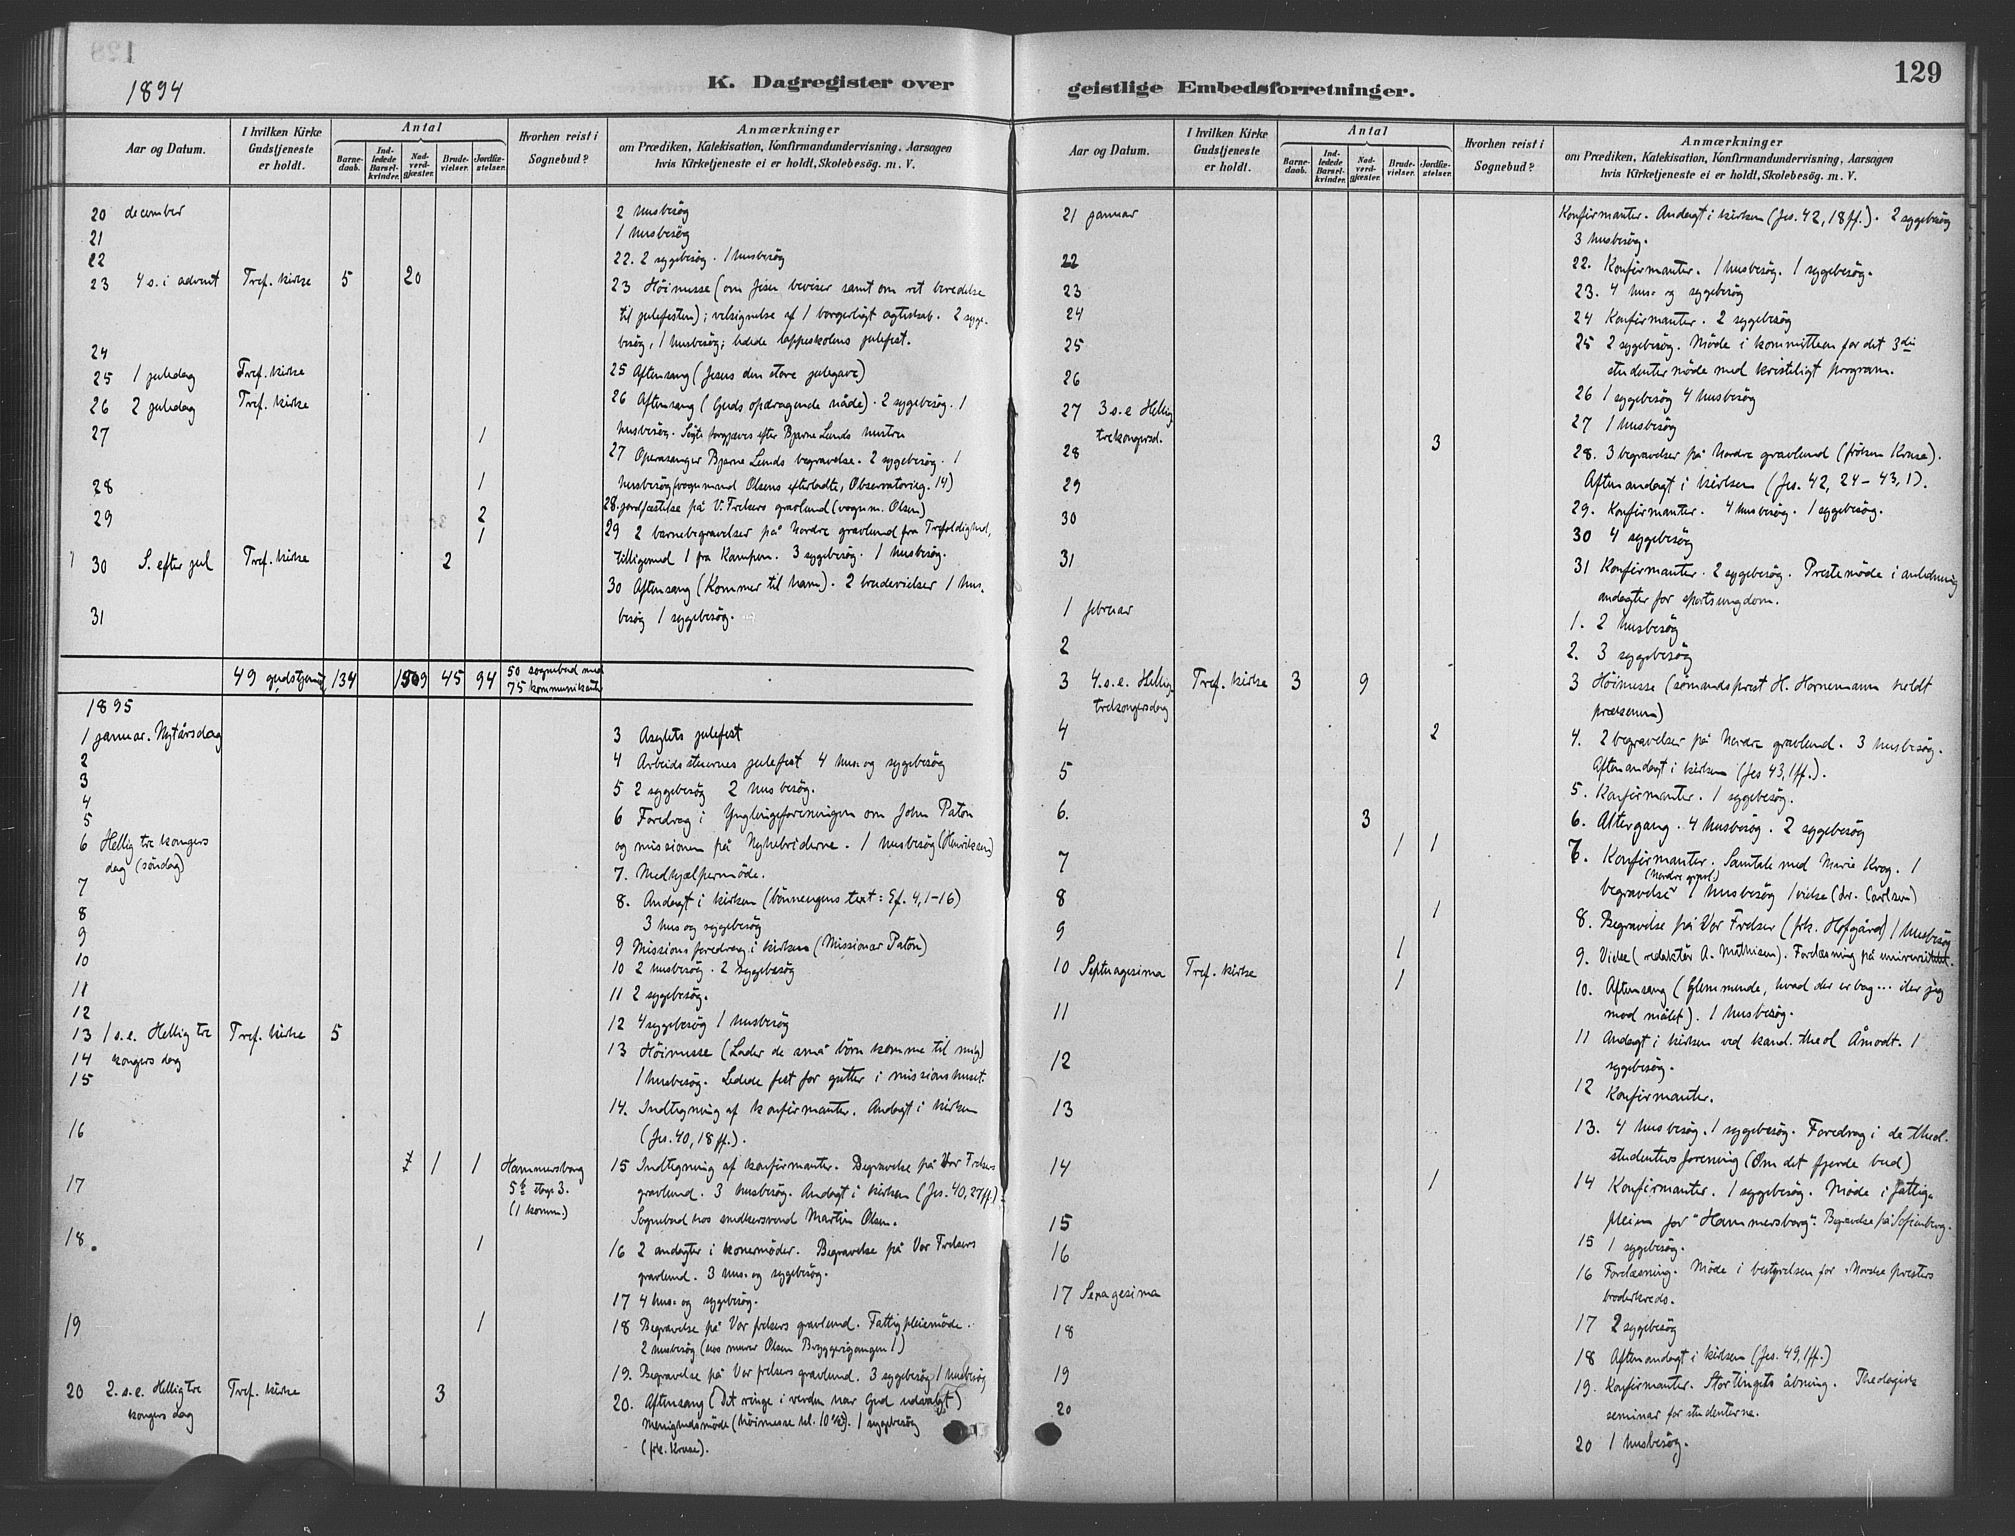 129
1894
K. Dagregister over
geistlige Embedsforretninger.
Aar og Datum.
I hvilken Kirke
Gudstjeneste
er holdt.
Antal
Barne-
daab.
Ind-
ledede
Barsel-
kvinder.
Nad-
verd-
gjæster.
Brude-
vielser.
Jordfæ-
stelser.
Hvorhen reist i
Sognebud?
Anmærkninger
om Prædiken, Katekisation, Konfirmandundervisning, Aarsagen
hvis Kirketjeneste ei er holdt, Skolebesög. m. V.
20 december
2 husbesøg
21
1 husbesøg
22
22. 2 sygebesøg. 1 husbesøg
23 4 s. i advent Tref. kirke 5 20
23 Höimesse (om Jesu beviser samt om ret beredelse
til julefesten); velsignelse af 1 borgerligt ægteskab. 2 syge-
besøg, 1 husbesøg; ledede lappeskolens julefest.
24
25 1 juledag Tref. kirke
25 Aftensang (Jesus den store julegave)
26 2 juledag Tref. kirke
26 Aftensang (Guds opdragende nåde). 2 sygebesøg. 1
husbesøg. Søgte forgjæves efter Bjarne Lunds hustru
27 1
27 Operasanger Bjarne Lunds begravelse. 2 sygebesøg. 1
husbesøg (vognmand Olsens efterladte, Observatorieg. 14)
28 1
28. jordfæstelse på V. Frelsers gravlund (vognm. Olsen)
29 2
1
29 2 barnebegravelser på Nordre gravlund fra Trefoldighed,
tilligemed 1 fra Kampen. 3 sygebesøg. 1 husbesøg.
30 S. efter jul Tref. kirke 2
30 Aftensang (Kommer til ham). 2 brudevielser 1 hus-
besøg 1 sygebesøg.
31
49 gudstjenester 134 1509 45 94 50 sognebud med
75 kommunikanter
1895
1 januar. Nytårsdag
2
3
3 Asylets julefest
4
4 Arbeidsstuernes julefest 4 hus- og sygebesøg
5
5 2 sygebesøg 2 husbesøg.
6 Hellig tre kongers
dag (söndag)
6 Foredrag i Ynglingeforeningen om John Paton
og missionen på Nyhebriderne. 1 husbesøg (Henriksen)
7
7. Medhjælpermöde.
8
8. Andagt i kirken (bönneugens text: Ef. 4, 1-16)
3 hus og sygebesøg
9
9 Missionsforedrag i kirken (Missionær Paton)
10
10 2 husbesøg. 2 sygebesøg
11
11 2 sygebesøg.
12
12 4 sygebesøg 1 husbesøg
13 1 s. e. Hellig tre
kongers dag Tref. kirke 5
13 Höimesse (Lader de små börn komme til mig)
1 husbesøg. Ledede fest for gutter i missionshuset.
14
14. Indtegning af konfirmanter. Andagt i kirken
(Jes. 40, 18 ff.).
15
1 1 Hammersborg
5b etage 3.
(1 komm.)
15 Indtegning af konfirmanter. Begravelse på Vor Frelsers
gravlund. 3 husbesøg. Andagt i kirken (Jes. 40, 27 ff.).
Sognebud hos snedkersvend Martin Olsen.
16
16 2 andagter i konemöder. Begravelse på Vor Frelsers
gravlund. 3 hus- og sygebesøg.
17
1
17 4 hus- og sygebesøg.
18.
1
18 Begravelse på Vor frelsers gravlund. Fattigpleiemöde.
2 husbesøg (hos murer Olsen Bryggerigangen 1)
19
19. Begravelse på Vor frelsers gravlund. 3 sygebesøg 1 husbesøg
20 2. s. e. Hellig tre
kongers dag Tref. kirke 3
20. Aftensang (Det ringe i verden har Gud udvalgt)
Menighedsmøde (höimesse kl. 10 ½). 1 sygebesøg
(frk. Kruse).
Aar og Datum.
I hvilken Kirke
Gudstjeneste
er holdt.
Antal
Barne-
daab.
Ind-
ledede
Barsel-
kvinder.
Nad-
verd-
gjæster.
Brude-
vielser.
Jordfæ-
stelser.
Hvorhen reist i
Sognebud?
Anmærkninger
om Prædiken, Katekisation, Konfirmandundervisning, Aarsagen
hvis Kirketjeneste ei er holdt, Skolebesög. m. V.
21 januar
Konfirmanter. Andagt i kirken (Jes. 42, 18 ff.). 2 sygebesøg
3 husbesøg.
22
22. Konfirmanter. 1 husbesøg. 1 sygebesøg.
23
23. 4 hus- og sygebesøg
24
24 Konfirmanter. 2 sygebesøg
25
25 2 sygebesøg. Möde i kommitteen for det 3die
studentermöde med kristeligt program.
26
26 1 sygebesøg 4 husbesøg
27 3 s. e Hellig
trekongersd.
27 1 husbesøg
28 3
28. 3 begravelser på Nordre gravlund (fröken Kruse).
Aftenandagt i kirken (Jes. 42, 24 – 43, 1).
29
29. Konfirmanter. 4 husbesøg. 1 sygebesøg.
30
30 4 sygebesøg
31
31 Konfirmanter. 2 sygebesøg. Prestemöde i anledning
andagter for sportsungdom.
1 februar
1. 2 husbesøg
2
2. 3 sygebesøg
3 4. s. e. Hellig
trekongersdag Tref. kirke 3 9
3 Höimesse (sömandsprest H. Hornemann holdt
prækenen)
4 2
4. 2 begravelser på Nordre gravlund. 3 husbesøg.
Aftenandagt i kirken (Jes 43, 1 ff.).
5
5. Konfirmanter. 1 sygebesøg.
6. 3
6. Altergang. 4 husbesøg. 2 sygebesøg
7 1 1
7. Konfirmanter. Samtale med Marie Krog. 1
(Nordre gravl.)
begravelse 1 husbesøg 1 vielse (dr. Carlsen)
8 1
8. Begravelse på Vor Frelser (frk. Hofgård) 1 husbesøg
9 1
9. Vielse (redaktör A. Mathisen). Forelæsning på universitetet.
10 Septuagesima Tref. kirke 1
10. Aftensang (Glemmende, hvad der er bag... iler jeg
mod målet). 1 husbesøg.
11
11 Andagt i kirken ved kand. theol Åmodt. 1
sygebesøg.
12
12 Konfirmanter.
13
13. 4 husbesøg. 1 sygebesøg. Foredrag i de theol.
studenters forening (Om det fjerde bud)
14 1
14 Konfirmanter. 1 sygebesøg. Möde i fattig-
pleien for "Hammersborg". Begravelse på Sofienberg.
15
15 1 sygebesøg.
16
16 Forelæsning. Möde i bestyrelsen for Norske presters
broderkreds.
17 Sexagesima
17 2 sygebesøg
18
18 Aftenandagt i kirken (Jes. 49, 1 ff.)
19
19. Konfirmanter. Stortingets åbning. Theologisk
seminar for studenterne.
20
20 1 husbesøg.